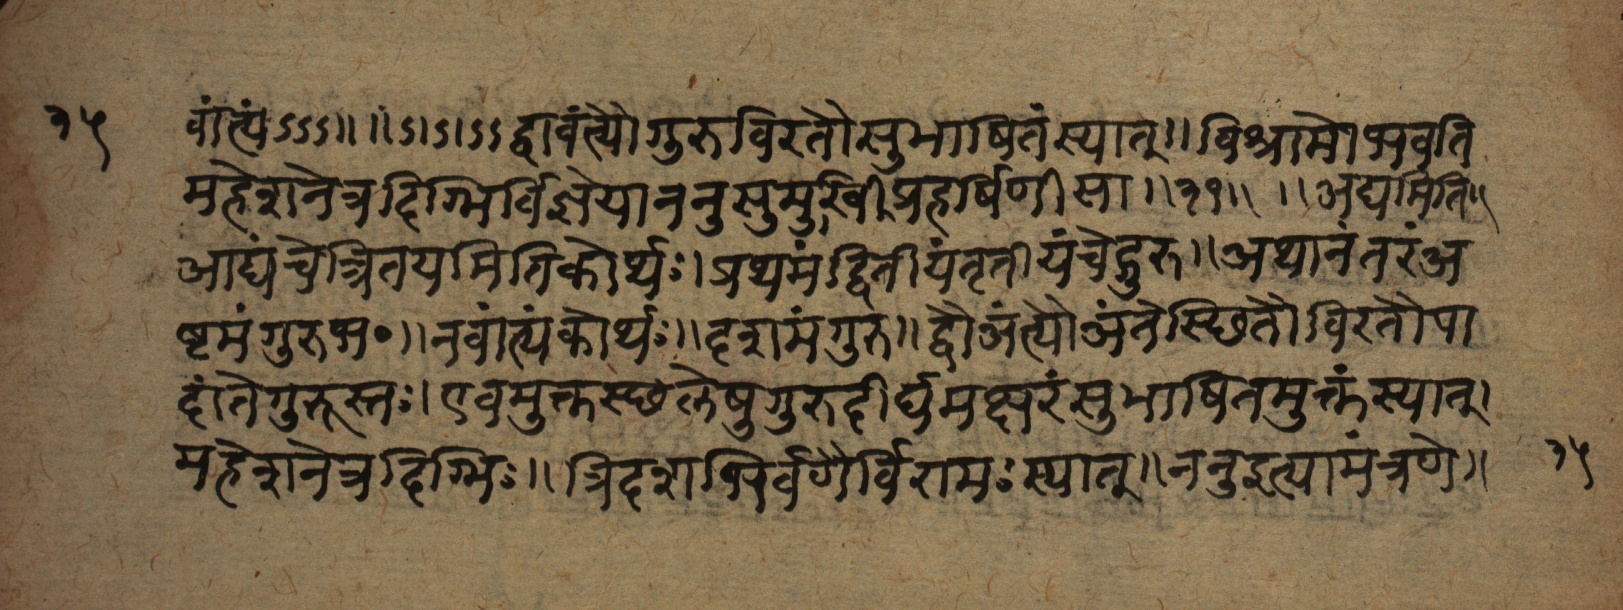 वांत्यंऽऽऽ॥ ॥ऽ।ऽ।ऽऽ द्वावंत्यौ गुरु विरतौ सुभाषितं स्यात्॥ विश्रामो भवति
महेशनेत्र दिग्भिर्विज्ञेया ननु सुमुखि प्रहर्षिणी सा॥३१॥ ॥आद्यमिति॥
आद्यं चेत्त्रितयमिति कोर्थः। प्रथमं द्वितीयं तृतीयं चेद्गुरु॥ अथानंतरं अ
ष्टमं गुरु भ॰॥ नवांत्यं कोर्थः॥ दशमं गुरु॥ द्वौ अंत्यौ अंते स्छितौ विरतौ पा
दांते गुरूस्तः। एवमुक्तस्छलेषु गुरु दीर्घमक्षरं सुभाषितमुक्तं स्यात्।
महेशनेत्र दिग्भिः॥ त्रिदशभिर्वर्णैर्विरामः स्यात्॥ ननु इत्यामंत्रणे॥
३५
३५